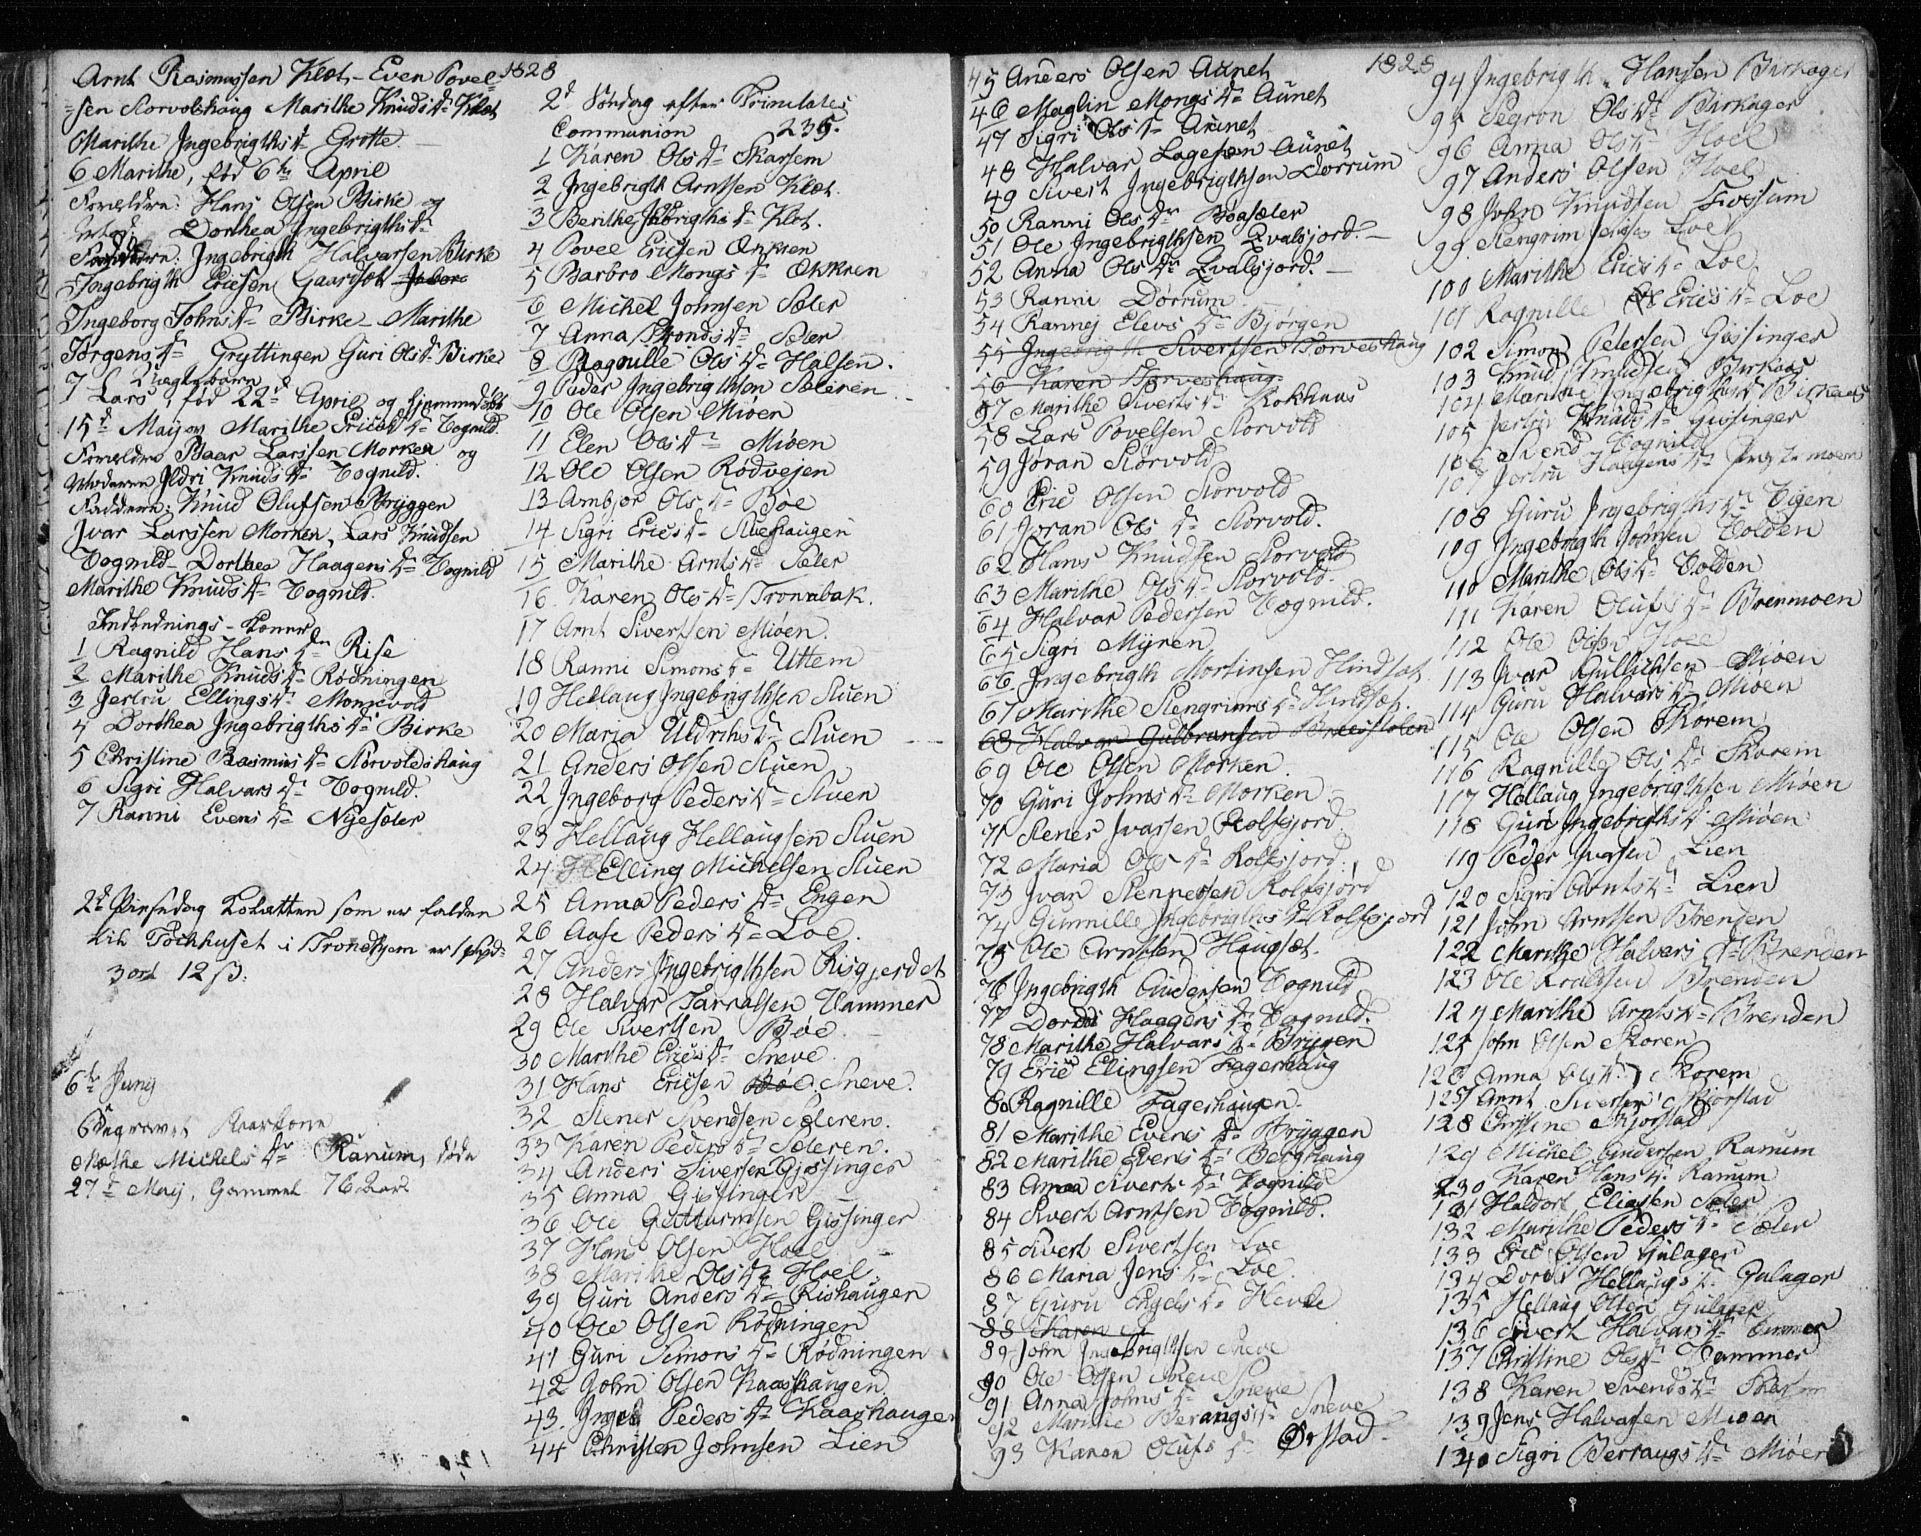 Arnt Rasmussen Klæt - Even Povel=
=sen Storvoldshaug Marithe Knuds Dr Klæt
Marithe Ingebrigths Dr Grøtte
6 Marithe, fød 6te April
Forældre: Hans Olsen Birke og
Dorthea Ingebrigths Dr
Faddere: Ingebrigth Halvorsen Birke
Ingebrigth Ericsen Gaardsæt
Ingeborg Johns Dr Birke - Marithe
Jørgens Dr Gryttingen Guri Ols Dr Birke
7 Lars, fød 22d April og hjemmedøbt
15d Maij av Marithe Erics Dr Tognild.
Forældre Baar Larssen Morken og
Moderen Ildri Knuds Dr Tognild.
Faddere: Knud Olufsen Bryggen
Ivar Larssen Morken, Lars Knudsen
Tognild - Dorthea Haagens Dr Tognild
Marithe Knuds Dr Tognild.
Indlednings-Koner
1 Ragnild Hans Dr Rise
2 Marithe Knuds Dr Rødningen
3 Jertru Ellings Dr Monsevold
4 Dorthea Ingebrigths Dr Birke
5 Christine Rasmus Dr Storvoldshaug
6 Sigri Halvars Dr Tognild.
7 Ranni Evens Dr Nyesæter
2d Pinsedag som er falden
til Tochhuset i Trondhjem er 1 Spd
3 ort 12 s.
6te Junij
Begravet
Mæthe Michels Dr Ranum, døde
27d Maij, Gammel 76 Aar
1828
2d Søndag efter Trinitatis
Communion 235.
1 Karen Ols Dr Skarsem
2 Ingebrigth Arntsen Klæt.
3 Berithe Ingebrigths Dr Klæt.
4 Povel Ericsen Økkren
5 Barbro Mongs Dr Økkren
6 Michel Johnsen Sæter
7 Anna Tronds Dr Sæter
8 Ragnille Ols Dr Halsen.
9 Peder Ingebrigthsen Sæteren
10 Ole Olsen Miøen
11 Elen Ols Dr Miøen
12 Ole Olsen Rødvejen
13 Ambjør Ols Dr Bøe
14 Sigri Erics Dr Stuehaugen
15 Marithe Arnts Dr Sæter
16 Karen Ols Dr Tronabak.
17 Arnt Sivertsen Miøen.
18 Ranni Simons Dr Uttem
19 Hellaug Ingebrigthsen Stuen
20 Maria Uldriks Dr Stuen
21 Anders Olsen Stuen
22 Ingeborg Peders Dr Stuen
23 Hellaug Hellaugsen Stuen
24 Elling Michelsen Stuen
25 Anna Peders Dr Engen
26 Aase Peders Dr Loe.
27 Anders Ingebrigthsen Risgjerdet
28 Halvar Tarralsen Hammer
29 Ole Sivertsen Bøe.
30 Marithe Erics Dr Sneve.
31 Hans Ericsen Bøe Sneve.
32 Stener Svendsen Sæteren.
33 Karen Peders Dr Sæteren.
34 Anders Sivertsen Gissinger
35 Anna Gissinger
36 Ole Guttormsen Gissinger
37 Hans Olsen Hoel
38 Marithe Ols Dr Hoel
39 Guri Anders Dr Rishaugen
40 Ole Olsen Rødningen
41 Guri Simons Dr Rødningen
42 John Olsen Kaashaugen
43 Peders Dr Kaashaugen
44 Christen Johnsen Lien
1828
45 Anders Olsen Aunet
46 Maglin Mongs Dr Aunet
47 Sigri Ols Dr Aunet
48 Halvar Lagesen Aunet
49 Sivert Ingebrigthsen Dørrum
50 Ranni Ols Dr Bøasæter
51 Ole Ingebrigthsen Evalsjord.
52 Anna Ols Dr Evalsjord.
53 Ranni Dørrum
54 Rannej Elevs Dr Bjørgen
55 Ingebrigth Sivertsen Torveshaug
56 Karen Torveshaug
57 Marithe Siverts Dr Kokhaus
58 Lars Povelsen Storvold
59 Jøran Storvold
60 Eric Olsen Storvold
61 Jøran Ols Dr Storvold.
62 Hans Knudsen Storvold
63 Marithe Ols Dr Storvold.
64 Halvar Pedersen Tognild.
65 Sigri Myren
66 Ingebrigth Mortinsen Hindsæt
67 Marithe Stengrims Dr Hindsæt.
68 Halvar Gulbransen
69 Ole Olsen Morken
70 Guri Johns Dr Morken
71 Stener Ivarsen Rolfsjord
72 Maria Ols Dr Rolfsjord.
73 Ivar Stenersen Rolfsjord
74 Gunnille Ingebrigths Dr Rolfsjord
75 Ole Arntsen Haugsæt.
76 Ingebrigth Andersen Tognild
77 Dordi Haagens Dr Tognild.
78 Marithe Halvars Dr Brygen
79 Eric Elingsen Fagerhaug
80 Ragnille Fagerhaugen.
81 Marithe Evens Dr Bryggen
82 Marithe Evens Dr Berghaug
83 Anna Siverts Dr Tognild
84 Sivert Arntsen Tognild.
85 Sivert Sivertsen Loe
86 Maria Jens Dr Loe.
87 Guru Engels Dr Hevle
88 Karen
89 John Ingebrigthsen Sneve
90 Ole Olsen Sneve
91 Anna Johns Dr Sneve
92 Marithe Berangs Dr Sneve
93 Karen Olufs Dr Ørstad
94 Ingebrigth Hansen Birkager
95 Segron Ols Dr Birkager
96 Anna Ols Dr Hoel
97 Anders Olsen Hoel
98 John Knudsen Fossum
99 Stengrim Loe
100 Marithe Erics Dr Loe
101 Ragnille Erics Dr Loe
102 Simon Petersen Gissinger
103 Knud Knudsen Birkaas
104 Marithe Ingebrigths Dr Birkaas
105 Jertru Knuds Dr Gissinger
106 Svend Tognild
107 Jertru Haagens Dr
108 Guru Ingebrigths Dr Vigen
109 Ingebrigth Johnsen Volden
110 Marithe Ols Dr Volden
111 Karen Olufs Dr Brenmoen
112 Ole Olsen Hoel
113 Ivar Gullichsen Miøen
114 Guru Halvars Dr Miøen
115 Ole Olsen Skorem
116 Ragnille Ols Dr Skorem
117 Hellaug Ingebrigthsen Miøen
118 Guri Ingebrigths Dr Miøen
119 Peder Ivarsen Lien
120 Sigri Arnts Dr Lien
121 John Arntsen Brenden
122 Marithe Halvers Dr Brenden
123 Ole Brenden
124 Marithe Arnts Dr Brenden
125 John Olsen Skoren
126 Anna Ols Dr Skorem
127 Arnt Sivertsen Skjørstad
128 Christine Skjørstad
129 Michel Andersen Ranum
130 Karen Hans Dr Ranum
131 Haldor Eliassen Sæter
132 Marithe Peders Dr Sæter
133 Eric Olsen Gulager
134 Dordi Hellaugs Dr Gulager
135 Hellaug Olsen Gulager
136 Sivert Halvars Hammer
137 Christine Ols Dr Hammer
138 Karen Svends Dr
139 Jens Halvorsen Miøen
140 Sigri Berraugs Dr Miøen